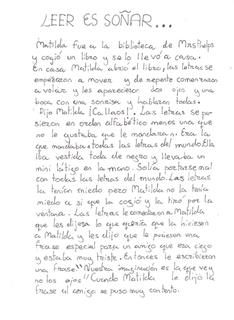 LEER ES SOÑAR...
Matilda fue a la biblioteca de Mrs Phelps
y cogió un libro y se lo llevó a casa.
En casa Matilda abrió el libro, las letras se
empezaron a mover y de repente comenzaron
a volar y les aparecieron dos ojos y una
boca con una sonrisa y hablaron todas.
Dijo Matilda ¡Callaos!. Las letras se pu-
sieron en orden alfabético menos una que
no le gustaba que le mandaran. Era la
que mandaba a todas las letras del mundo. Ella
iba vestida toda de negro y llevaba un
mini látigo en la mano. Solía portarse mal
con todas las letras del mundo. Las letras
la tenían miedo pero Matilda no la tenía
miedo a si que la cogió y la tiró por la
ventana. Las letras le comentaron a Matilda
que les dijera lo que quería que la hiciesen
a Matilda y les dijo que le pusieran una
frase especial para un amigo que era ciego
y estaba muy triste. Entonces le escribieron
una frase "Nuestra imaginación es la que ve y
no los ojos" Cuando Matilda le dijo la
frase al amigo se puso muy contento.